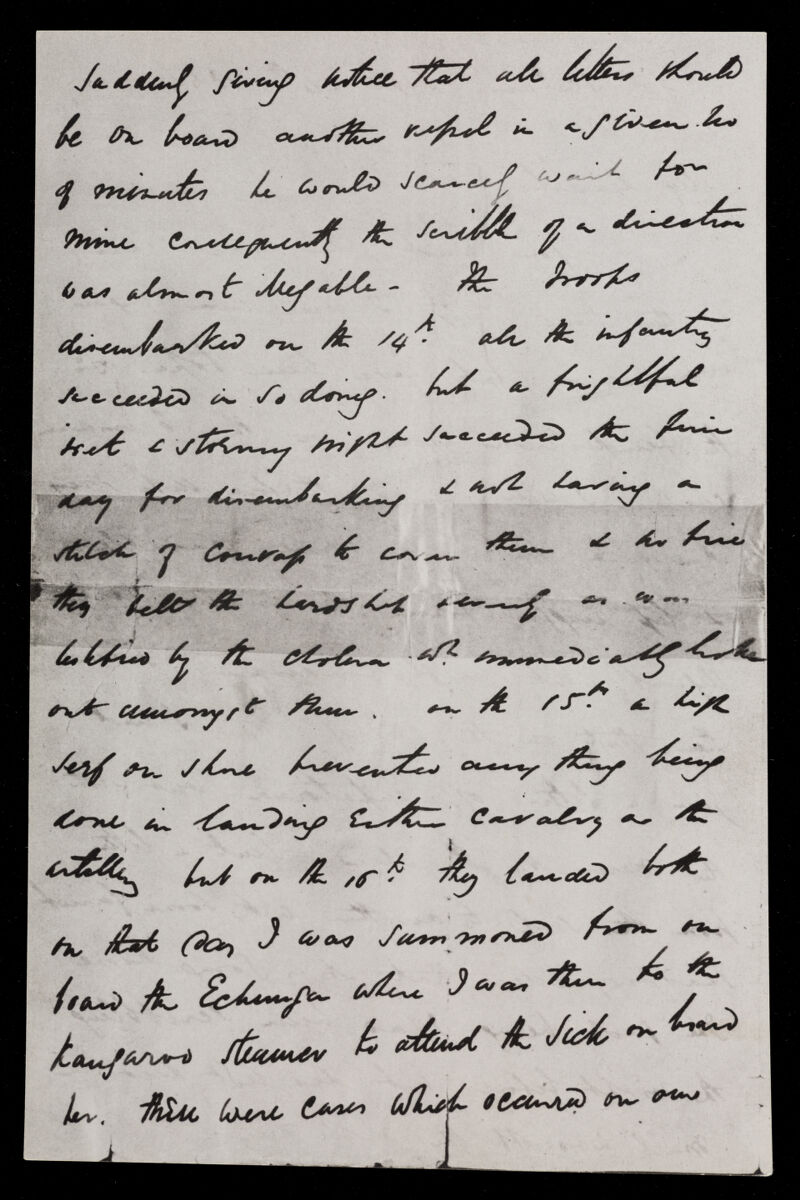 suddenly giving notice that all letters should
be on board another vessel in a given No
of minutes he would scarcely wait for
mine consequently the scribble of a direction
was almost illegable - The Troops
disembarked on the 14th. all the infantry
succeeded in so doing. but a frightful
wet & stormy night succeeded the fine
day for disembarking & not having a
stitch of convass to cover them & no fire
they felt the hardship severely as was
testified by the cholera wh. immediately broke
out amongst them. on the 15th. a high
serf on shore prevented any thing being
done in landing Either Cavalry or the
artillery but on the 16th. they landed both
on that day I was summoned from on
board the Echunga where I was then to the
Kangaroo steamer to attend the sick on board
her. there were cases which occurred on our